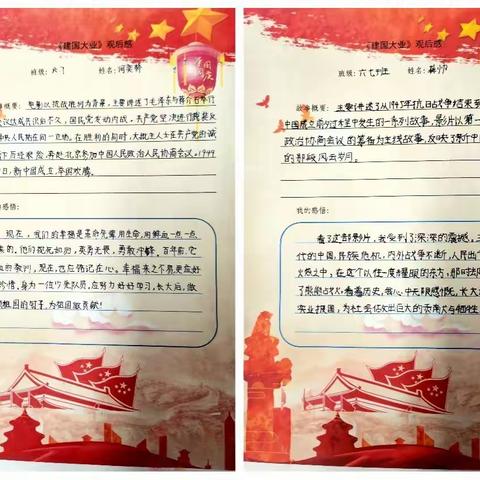 《建国大业》观后感
班级: 六7 姓名:
故事概要: 整影以抗战胜利为背景,主要讲述了毛泽东与蒋介石举行
议达成共识却不久,国民党发动内战,共产党坚决进行
人民站在同一立场。在胜利的同时,大批主人士在共产党的
下历经艰险,奔赴北京参加中国人民政治人民协商会议。1949
日,新中国成立,举国欢腾。
我的感悟:
现在,我们的幸福是革命先辈用生命,用鲜血一点一点
来的。他们视死如归,英勇无畏,勇敢冲锋,百年前,
的教训,现在,也应铭记在心。幸福来之不易更应好
珍惜,身为一位少先队员,应努力好好学习,长大后,做
祖国的
为祖国做贡献!
《建国大业》观后感
班级: 六七班 姓名:
故事概要: 主要讲述了从1945年抗日战争结束到
中国成立前夕过程中发生的一系列故事,影片以第一
政治协商会议的筹备为主线故事,反映了新中
的那段风云岁月。
我的感悟:
看了这部影片,我受到了深深的震撼,
代的中国,阵阵危机,内外战争不断,人民出
火热之中,在这个以往一度耀眼的东方,那时
看着历史,我心中无限感慨,长大
实业报国,为社会做出巨大的贡献